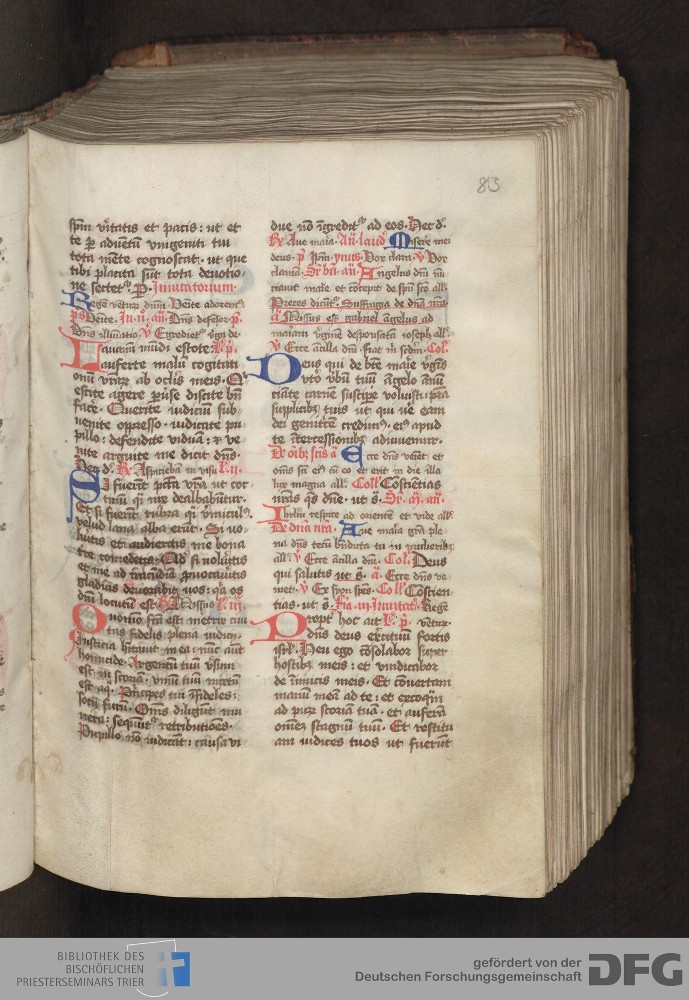 83
spm v̄itatis et pacis : ut et
te ꝑ aduētū vnigeniti tui
tota mēte cognoscat · ut que
tibi placita sūt tota deuotio
ne sectetᷣ. P. Inuitatorium.
Regē venturū dnm̄ · Venite adorem9
ps Venite. In .ij. añ. Dns defēsor p̄.
Dns illuīatio v̄ Egredietᷣ v̓ga de
Lauamī mūdi estote
Auferte malū cogitati
onū vr̄aꝝ ab oclis meis. Qi
escite agere ꝑuse discite bn̄
facē. Querite iudiciū sub
uenite oppresso · iudicate pu
pillo : defendite viduā : ꝛ ve
nite arguite me dicit dn̄s.
Hec d. Rx Aspiciebā in visu l. ij.
Si fuerint pctā vr̄a ut coc
cinū qͥ nix dealbabūtur.
Et si fuerīt rubra qͥ v̓miculꝰ
velud lana alba erūt. Si uo
lueritis et audieritis me bona
tre comedetis. Qd si noluitis
et me ad iracūdiā ꝓuocauitis
gladius deuorabit uos : qa os
dni locutū est. Rx Missus l. iij.
Quomō fcā est met̓ix ciui
tas fidelis plena iudicij.
Iusticia hītauit in ea : nūc aūt
homicide. Argentū tuū v̓sum
est in scoriā. vinū tuū mixtū
est aq. Pncipes tui ifideles :
socij furū. Oms diligūt mu
nera : sequūtᷣ retributiōes.
Pupillo nō iudicāt : causa vi
due nō īgreditᷣ ad eos. Hec d.
Rx Aue maia. Añ. laud Misere mei
deus. p̄ Ipm̄. ymꝰ. Vox clara. v̄ Vox
clamā. Sr bn̄ añ. Angelus dn̄i nū
ciauit marie et cōcepit de spū sco all.
Preces dicūtᷣ. Suffragia de dn̄a nra
añ Missus est gabriel āgelus ad
mariam v̓ginē despōsatā ioseph all.
v̄ Ecce ācilla dn̄i. fiat m̄ scdm̄. Col.
Deus qui de bte marie v̓gīs
vtō vbū tuū āgelo ānū
ciāte carnē suscipe voluisti : p̄sta
supplicibꝫ tuis ut qui vē eam
dei genitcē credimꝰ. eiꝰ apud
te ītercessionibꝫ adiuuemur.
De oibꝫ scīs ā Ecce dn̄s veiēt et
oms sci eiꝰ cū eo et erit in die illa
lux magna all. Coll. Cōsciētias
nr̄as qs dne. ut s. Sr. aij. añ.
Ihrlm̄ respice ad orientē et vide all.
De dn̄a nr̄a. Aue maia grā ple
na dn̄s tecū bn̄dicta tu in mulieribꝫ
all. v̄ Ecce ācilla dn̄i. Col. Deus
qui salutis ut s. ā. Ecce dn̄s ve
niet. v̄ Ex syon spēs. Coll. Cōscien
tias. ut s. Fia .iij. Inuitat. Regē
Propt̓ hoc ait l. p̄. ventur
dn̄s deus excituū fortis
isrl. Heu ego cōsolabor super
hostibꝫ meis : et vindicabor
de īimicis meis. Et cōuertam
manū meā ad te : et excoqͣm
ad puꝝ scoriā tuā. et auferā
omne stagnū tuū. Et restitu
am iudices tuos ut fuerūt
BIBLIOTHEK DES
BISCHÖFLICHEN
PRIESTERSEMINARS TRIER
gefördert von der
Deutschen Forschungsgemeinschaft
DFG